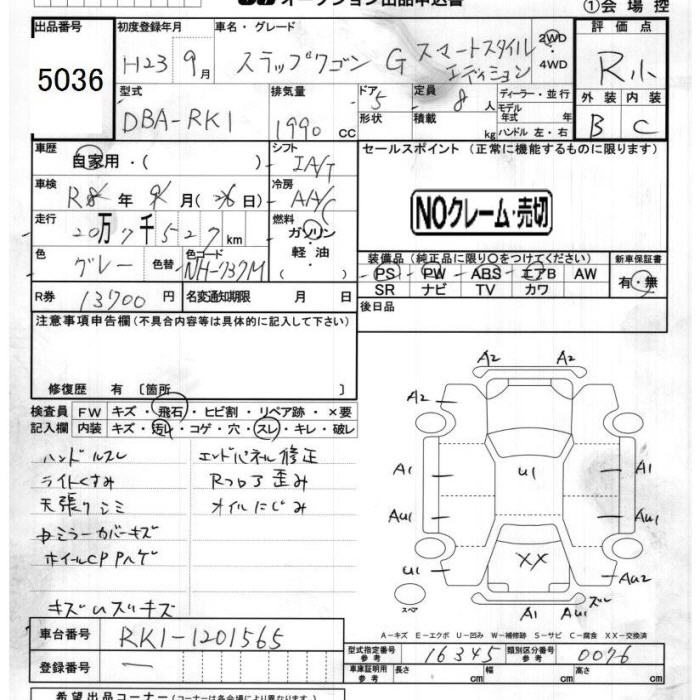 オークション出品申込書
①会場控
出品番号
5036
初度登録年月
H23 9月
車名・グレード
ステップワゴン G スマートスタイルエディション
2WD
4WD
評価点
R小
外装 内装
B C
型式
DBA-RK1
排気量
1990 cc
ドア 5
形状
定員 8 人
積載 kg
ディーラー・並行
モデル年式 年
ハンドル 左・右
車歴
自家用・( )
シフト
IA/T
セールスポイント(正常に機能するものに限ります)
車検
R8年 9月(26日)
冷房
A/A/C
NOクレーム・売切
走行
20万7千527 km
燃料
ガソリン
軽油
( )
色
グレー
色替
色コード
NH-737M
装備品(純正品に限り○をつけてください)
PS PW ABS エアB AW
SR ナビ TV カワ
新車保証書
有・無
R券
13700円
名変通知期限 月 日
後日品
注意事項申告欄(不具合内容等は具体的に記入して下さい)
修復歴 有 〔箇所 〕
検査員 FW キズ・飛石・ヒビ割・リペア跡・×要
記入欄 内装 キズ・汚れ・コゲ・穴・スレ・キレ・破レ
ハンドルスレ
ライトくすみ
天張りシミ
中ミラーカバーキズ
ホイールCPPハゲ
キズUズリキズ
エンドパネル修正
Rフロア歪み
オイルにじみ
A2 A2
A2
A1 U1 A1
AU1 AU1
U1 XX AU2
スペア
A1 AU1 ズレ
A-キズ E-エクボ U-凹み W-補修跡 S-サビ C-腐食 XX-交換済
車台番号
RK1-1201565
登録番号
—
型式指定番号 参考
16345
類別区分番号 参考
0076
車庫証明用 参考 長さ cm 幅 cm 高さ cm
希望出品コーナー(コーナーは各会場により異なります。)